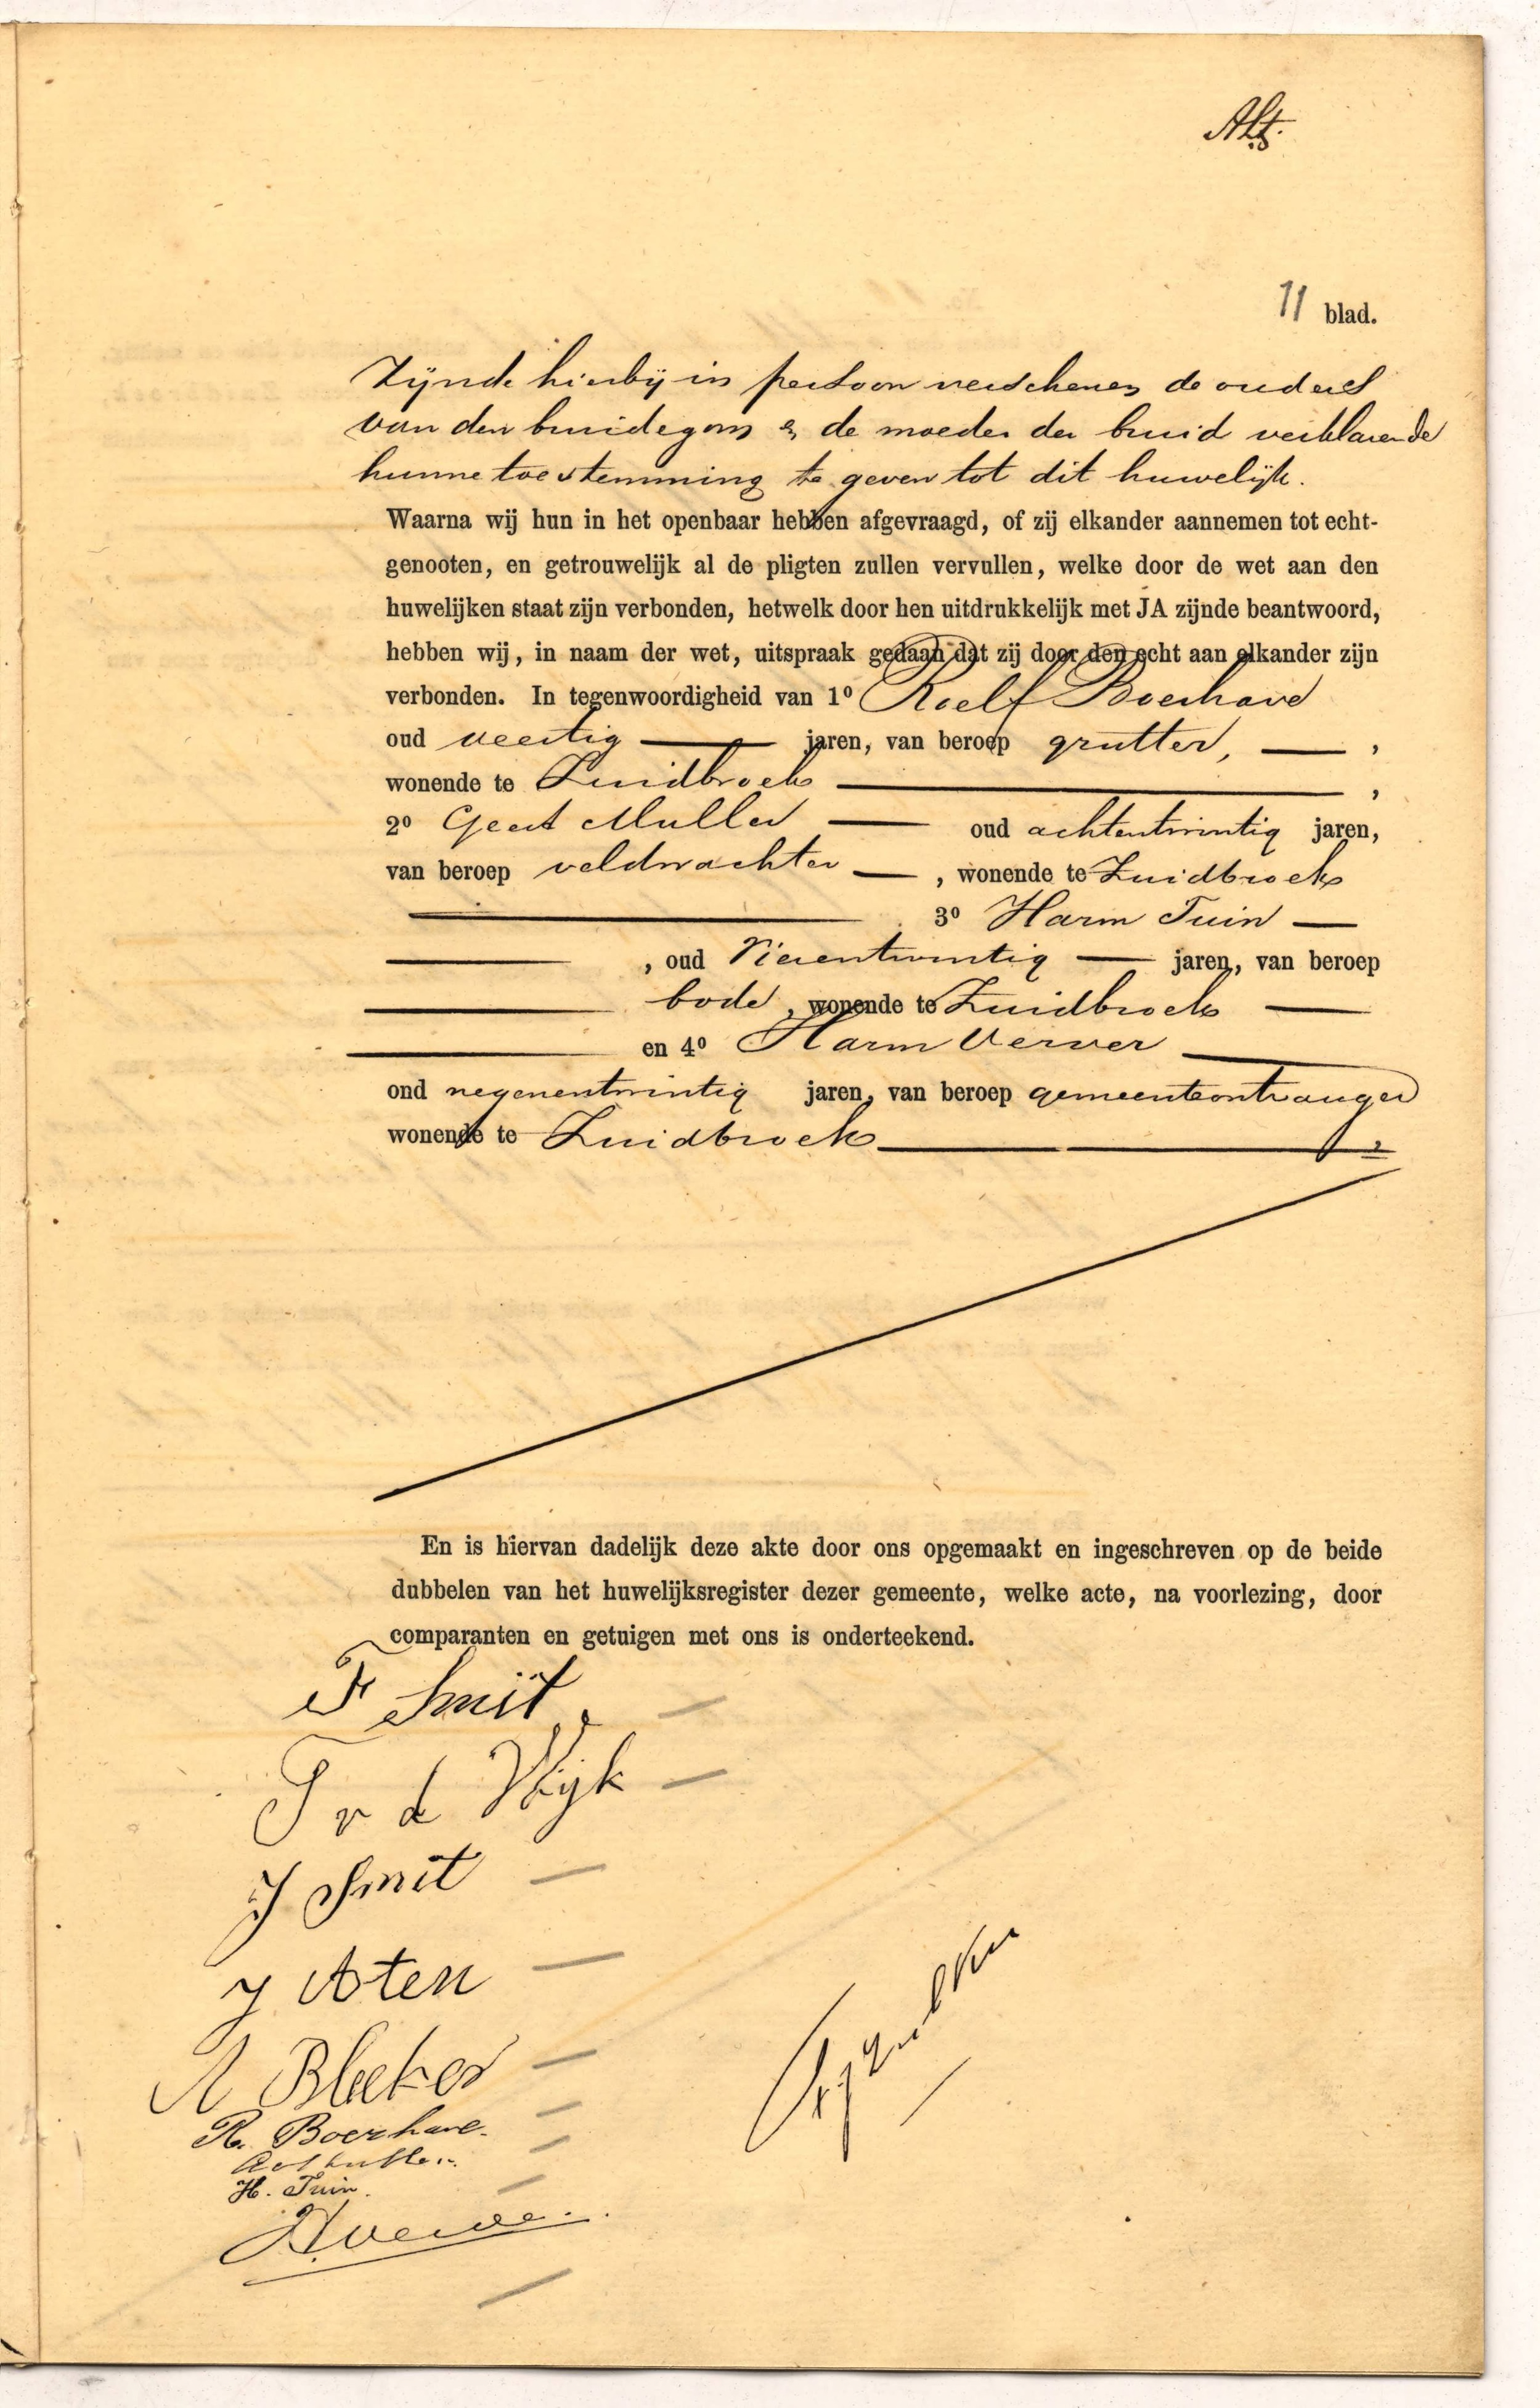 Alt.
11 blad.
Zijnde hierbij in persoon verschenen de ouders
van den bruidegom & de moeder der bruid verklarende
hunne toestemming te geven tot dit huwelijk.
Waarna wij hun in het openbaar hebben afgevraagd, of zij elkander aannemen tot echt-
genooten, en getrouwelijk al de pligten zullen vervullen, welke door de wet aan den
huwelijken staat zijn verbonden, hetwelk door hen uitdrukkelijk met JA zijnde beantwoord,
hebben wij, in naam der wet, uitspraak gedaan dat zij door den echt aan elkander zijn
verbonden. In tegenwoordigheid van 1º Roelf Boerhave
oud veertig jaren, van beroep grutter, ,
wonende te Zuidbroek ,
2º Geert Muller oud achtentwintig jaren,
van beroep veldwachter , wonende te Zuidbroek
3º Harm Tuin
, oud Vierentwintig jaren, van beroep
bode, wonende te Zuidbroek
en 4º Harm Verver
oud negenentwintig jaren, van beroep gemeenteontvanger
wonende te Zuidbroek
En is hiervan dadelijk deze akte door ons opgemaakt en ingeschreven op de beide
dubbelen van het huwelijksregister dezer gemeente, welke acte, na voorlezing, door
comparanten en getuigen met ons is onderteekend.
Smit
T v d Wijk
J Smit
J Aten
A Bleker
R. Boerhave.
H. Tuin.